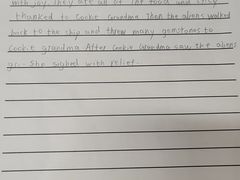 with joy. They ate all of the food and
thanked to Cookie Grandma. Then the aliens walked
back to the ship and threw many gemstones to
Cookie grandma. After Cookie Grandma saw the aliens
go.. She sighed with relief.